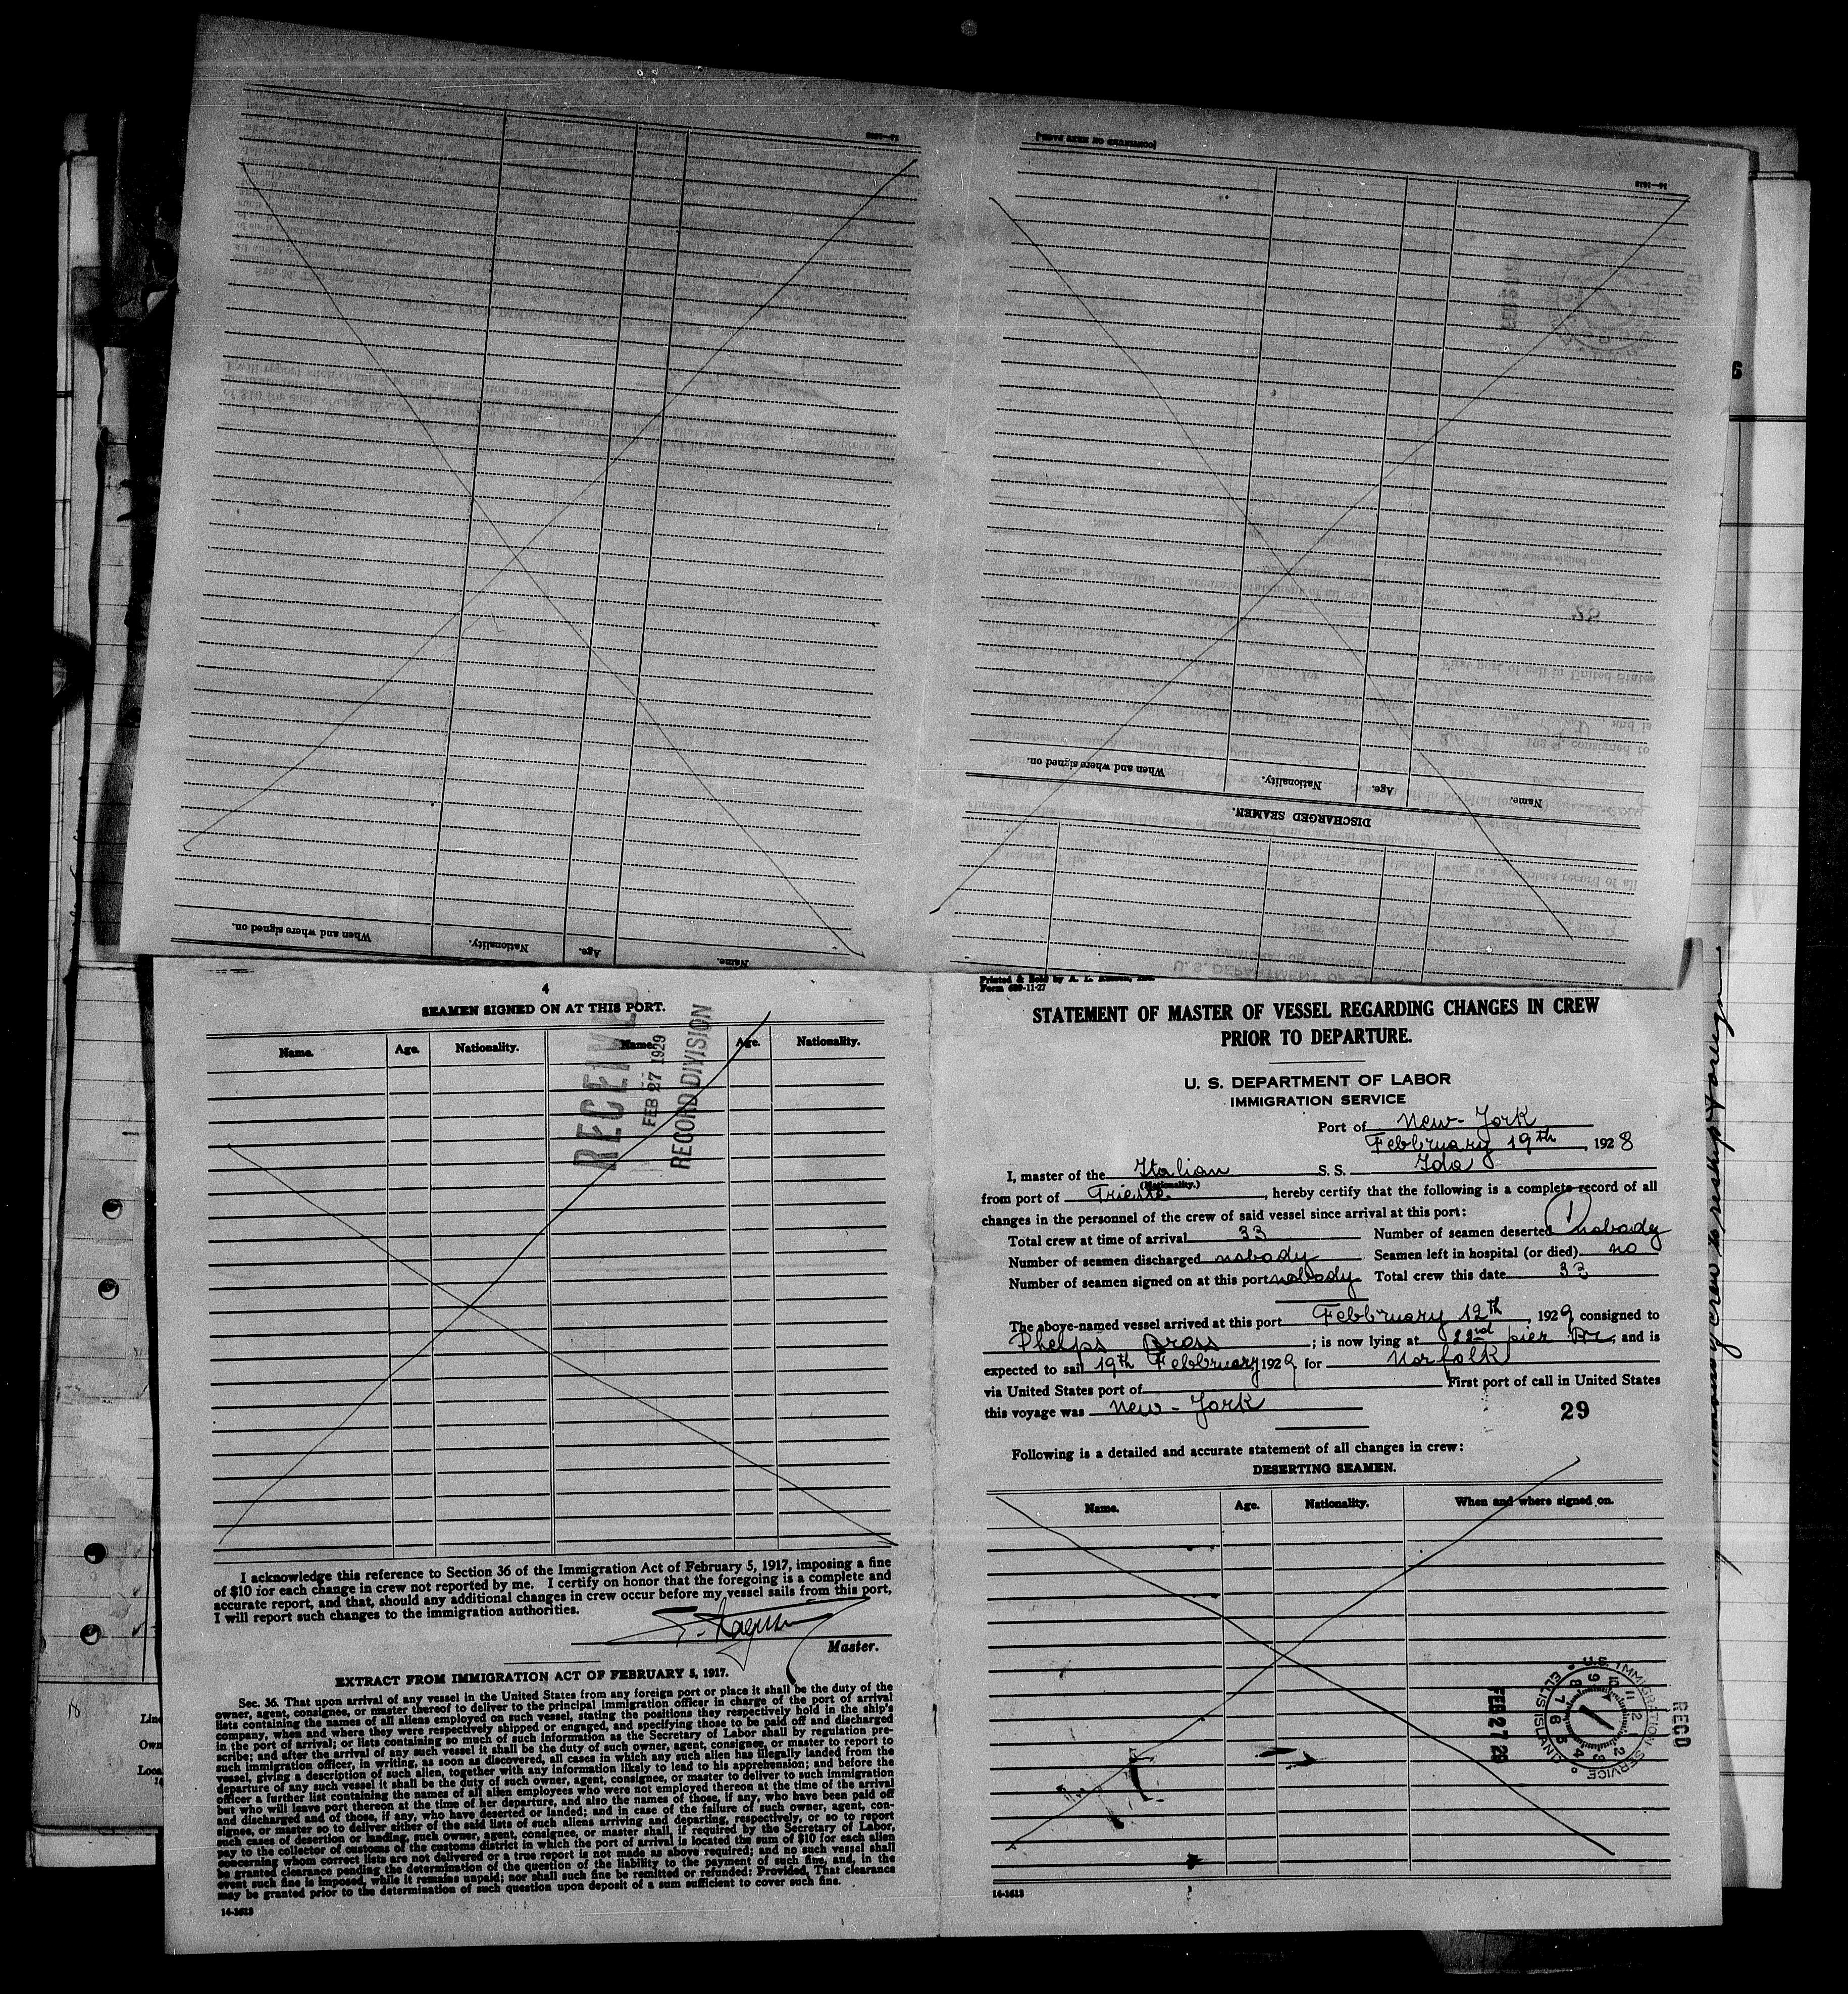 (CONTINUED ON NEXT PAGE)
14—1613
14—1613
When and where signed on.
Nationality.
Age.
Name.
DISCHARGED SEAMEN.
When and where signed on.
Nationality.
Age.
Name.
4
SEAMEN SIGNED ON AT THIS PORT.
Name. Age. Nationality. Name. Age. Nationality.
RECEIVED
FEB 27 1929
RECORD DIVISION
I acknowledge this reference to Section 36 of the Immigration Act of February 5, 1917, imposing a fine
of $10 for each change in crew not reported by me. I certify on honor that the foregoing is a complete and
accurate report, and that, should any additional changes in crew occur before my vessel sails from this port,
I will report such changes to the immigration authorities.
Master.
EXTRACT FROM IMMIGRATION ACT OF FEBRUARY 5, 1917.
Sec. 36. That upon arrival of any vessel in the United States from any foreign port or place it shall be the duty of the
owner, agent, consignee, or master thereof to deliver to the principal immigration officer in charge of the port of arrival
lists containing the names of all aliens employed on such vessel, stating the positions they respectively hold in the ship's
company, when and where they were respectively shipped or engaged, and specifying those to be paid off and discharged
in the port of arrival; or lists containing so much of such information as the Secretary of Labor shall by regulation pre-
scribe; and after the arrival of any such vessel it shall be the duty of such owner, agent, consignee, or master to report to
such immigration officer, in writing, as soon as discovered, all cases in which any such alien has illegally landed from the
vessel, giving a description of such alien, together with any information likely to lead to his apprehension; and before the
departure of any such vessel it shall be the duty of such owner, agent, consignee, or master to deliver to such immigration
officer a further list containing the names of all alien employees who were not employed thereon at the time of the arrival
but who will leave port thereon at the time of her departure, and also the names of those, if any, who have been paid off
and discharged and of those, if any, who have deserted or landed; and in case of the failure of such owner, agent, con-
signee, or master so to deliver either of the said lists of such aliens arriving and departing, respectively, or so to report
such cases of desertion or landing, such owner, agent, consignee, or master shall, if required by the Secretary of Labor,
pay to the collector of customs of the customs district in which the port of arrival is located the sum of $10 for each alien
concerning whom correct lists are not delivered or a true report is not made as above required; and no such vessel shall
be granted clearance pending the determination of the question of the liability to the payment of such fine, and, in the
event such fine is imposed, while it remains unpaid; nor shall such fine be remitted or refunded: Provided, That clearance
may be granted prior to the determination of such question upon deposit of a sum sufficient to cover such fine.
14-1613
Printed & Sold by A. L.
Form 689-11-27
STATEMENT OF MASTER OF VESSEL REGARDING CHANGES IN CREW
PRIOR TO DEPARTURE.
U. S. DEPARTMENT OF LABOR
IMMIGRATION SERVICE
Port of New-York
Febbruary 19th, 1928
I, master of the Italian S. S. Ida
(Nationality.)
from port of Trieste, hereby certify that the following is a complete record of all
changes in the personnel of the crew of said vessel since arrival at this port:
Total crew at time of arrival 33 Number of seamen deserted nobody
Number of seamen discharged nobody Seamen left in hospital (or died) no
Number of seamen signed on at this port nobody Total crew this date 33
The above-named vessel arrived at this port Febbruary 12th, 1929 consigned to
Phelps Bross; is now lying at 22nd pier, and is
expected to sail 19th Febbruary 1929 for Norfolk
via United States port of First port of call in United States
this voyage was New-York
29
Following is a detailed and accurate statement of all changes in crew:
DESERTING SEAMEN.
Name. Age. Nationality. When and where signed on.
U.S. IMMIGRATION SERVICE
ELLIS ISLAND
FEB 27 29
RECD
14-1613